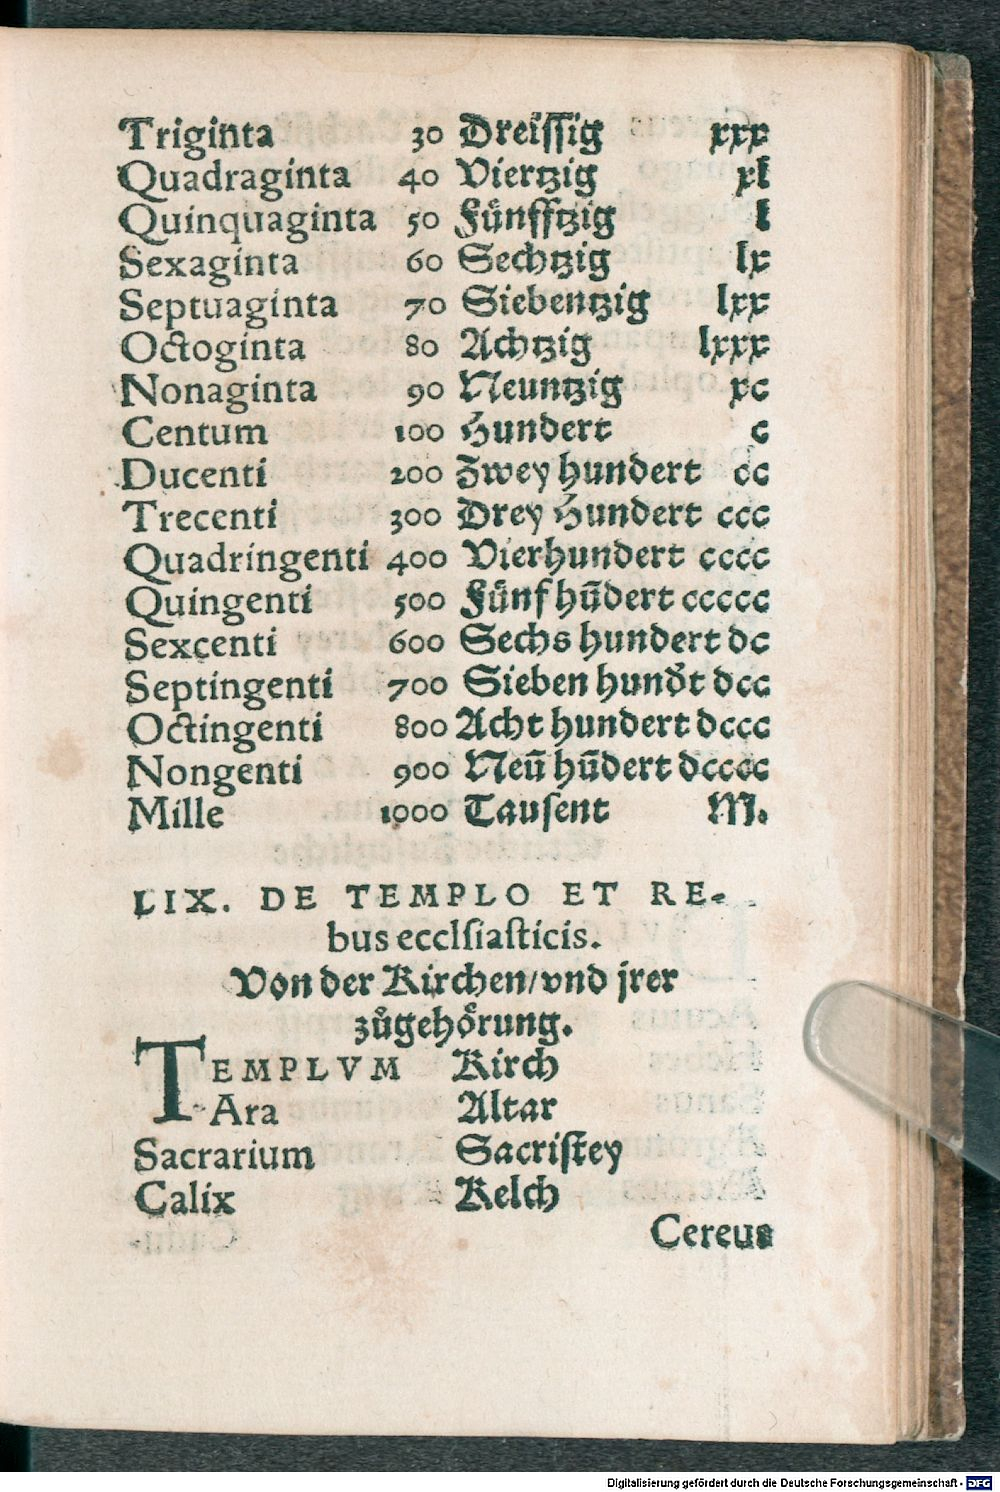 Triginta 30 Dreiſſig xxx
Quadraginta 40 Viertzig xl
Quinquaginta 50 Fünfftzig l
Sexaginta 60 Sechtzig lx
Septuaginta 70 Siebentzig lxx
Octoginta 80 Achtzig lxxx
Nonaginta 90 Neuntzig xc
Centum 100 Hundert c
Ducenti 200 Zwey hundert cc
Trecenti 300 Drey Hundert ccc
Quadringenti 400 Vierhundert cccc
Quingenti 500 Fünf hūdert ccccc
Sexcenti 600 Sechs hundert dc
Septingenti 700 Sieben hundt̉ dcc
Octingenti 800 Acht hundert dccc
Nongenti 900 Neū hūdert dcccc
Mille 1000 Tauſent M.
LIX. DE TEMPLO ET RE-
bus ecclſiaſticis.
Von der Kirchen/vnd jrer
zůgehoͤrung.
TEMPLVM Kirch
Ara Altar
Sacrarium Sacriſtey
Calix Kelch
Cereus
Digitalisierung gefördert durch die Deutsche Forschungsgemeinschaft - DFG